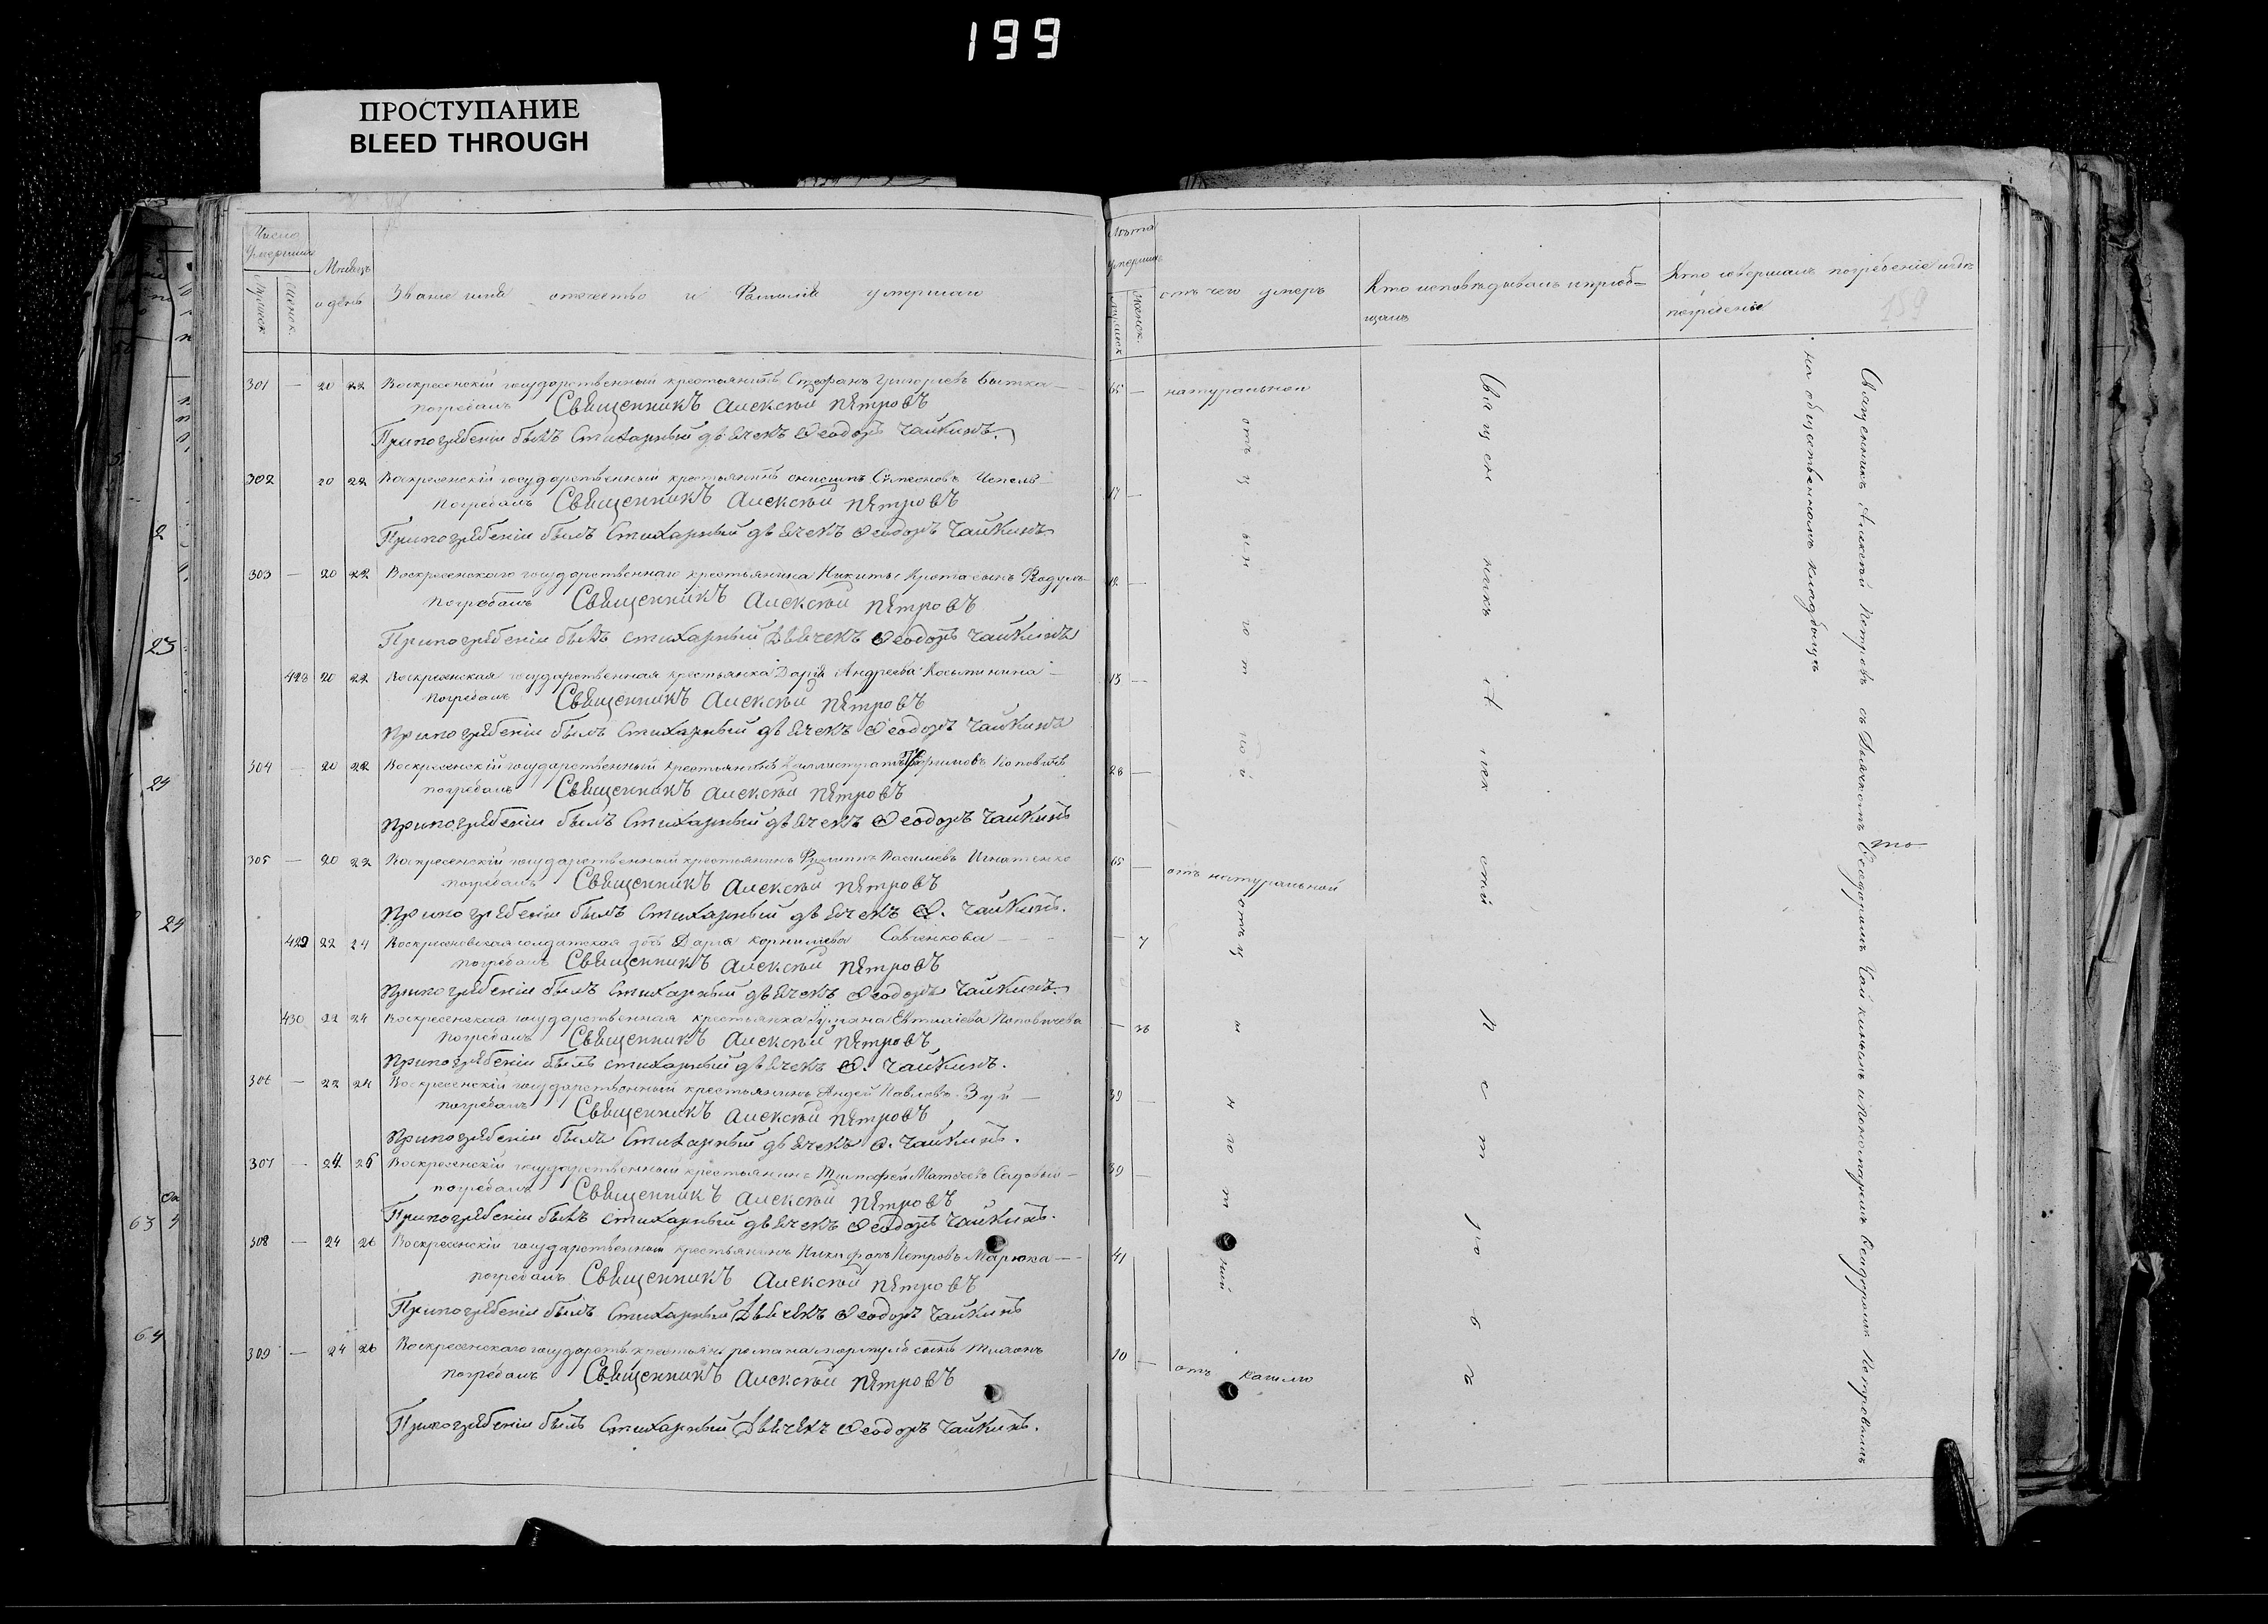 199
ПРОСТУПАНИЕ
BLEED THROUGH
Число умершихъ
Мужеск. Женск.
Мѣсяцъ и день
Званіе имя отечество и Фамилія умершаго
301 — 20 22 Воскресенскій государственный крестьянинъ Стефанъ Григорьевъ
погребалъ Священникъ Алексѣй Петровъ
При погребеніи былъ Стихарный дьячекъ Ѳеодоръ Чайкинъ.
302 20 22 Воскресенскій государственный крестьянинъ Онисимъ Симеоновъ Чепель
погребалъ Священникъ Алексѣй Петровъ
При погребеніи былъ Стихарный дьячекъ Ѳеодоръ Чайкинъ
303 — 20 22 Воскресенскаго государственнаго крестьянина Никиты сынъ
погребалъ Священникъ Алексѣй Петровъ
При погребеніи былъ стихарный Дьячекъ Ѳеодоръ Чайкинъ
428 20 22 Воскресенская государственная крестьянка Дарія Андреева Косьминина
погребалъ Священникъ Алексѣй Петровъ
При погребеніи былъ Стихарный дьячекъ Ѳеодоръ Чайкинъ
304 — 20 22 Воскресенскій государственный крестьянинъ Каллистратъ Трофимовъ Поповичъ
погребалъ Священникъ Алексѣй Петровъ
При погребеніи былъ Стихарный дьячекъ Ѳеодоръ Чайкинъ
305 — 20 22 Воскресенскій государственный крестьянинъ Филиппъ Василіевъ Игнатенко
погребалъ Священникъ Алексѣй Петровъ
При погребеніи былъ Стихарный дьячекъ Ѳ. Чайкинъ.
429 22 24 Воскресеновская солдатская дочь Дарія Корниліева Савченкова
погребалъ Священникъ Алексѣй Петровъ
При погребеніи былъ Стихарный дьячекъ Ѳеодоръ Чайкинъ.
430 22 24 Воскресенская государственная крестьянка Евтихіева Поповичева
погребалъ Священникъ Алексѣй Петровъ
При погребеніи былъ стихарный дьячекъ Ѳ. Чайкинъ.
306 — 22 24 Воскресенскій государственный крестьянинъ Андей Павловъ Зуй
погребалъ Священникъ Алексѣй Петровъ
При погребеніи былъ Стихарный дьячекъ Ѳ. Чайкинъ.
307 — 24 26 Воскресенскій государственный крестьянинъ Тимофей Матѳеевъ Садовый
погребалъ Священникъ Алексѣй Петровъ
При погребеніи былъ стихарный дьячекъ Ѳеодоръ Чайкинъ.
308 — 24 26 Воскресенскій государственный крестьянинъ Никифоръ Петровъ Марюха
погребалъ Священникъ Алексѣй Петровъ
При погребеніи былъ Стихарный Дьячекъ Ѳеодоръ Чайкинъ
309 — 24 26 Воскресенскаго государств. крестьян. Романа сынъ
погребалъ Священникъ Алексѣй Петровъ
При погребеніи былъ Стихарный Дьячекъ Ѳеодоръ Чайкинъ.
Лѣта умершихъ
Мужеск Женск.
отъ чего умеръ
Кто исповѣдывалъ и пріоб-
щалъ
Кто совершалъ погребеніе и гдѣ
погребены
159
65 — натуральной
17 —
12 —
13 —
28 —
65 — отъ натуральной
— 7
— 26
39 —
39 —
41
10 — отъ кашлю
отъ цынготной
отъ цынготной
Священникъ Алексѣй Петровъ
тo
Священникъ Алексѣй Петровъ съ Дьячкомъ Ѳеодоромъ Чайкинымъ и Пономаремъ Петровымъ
на общественномъ кладбищѣ